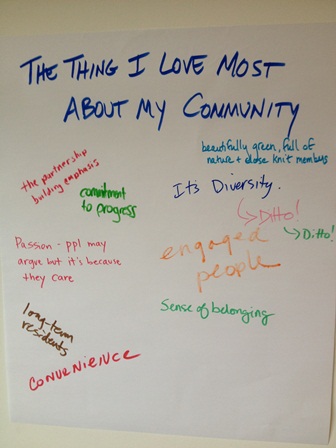 THE THING I LOVE MOST
ABOUT MY COMMUNITY
beautifully green, full of
nature + close knit members
the partnership
building emphasis
commitment
to progress
It's Diversity.
Ditto!
Ditto!
engaged
people
Passion - ppl may
argue but it's because
they care
Sense of belonging
long-term
residents
CONVENIENCE